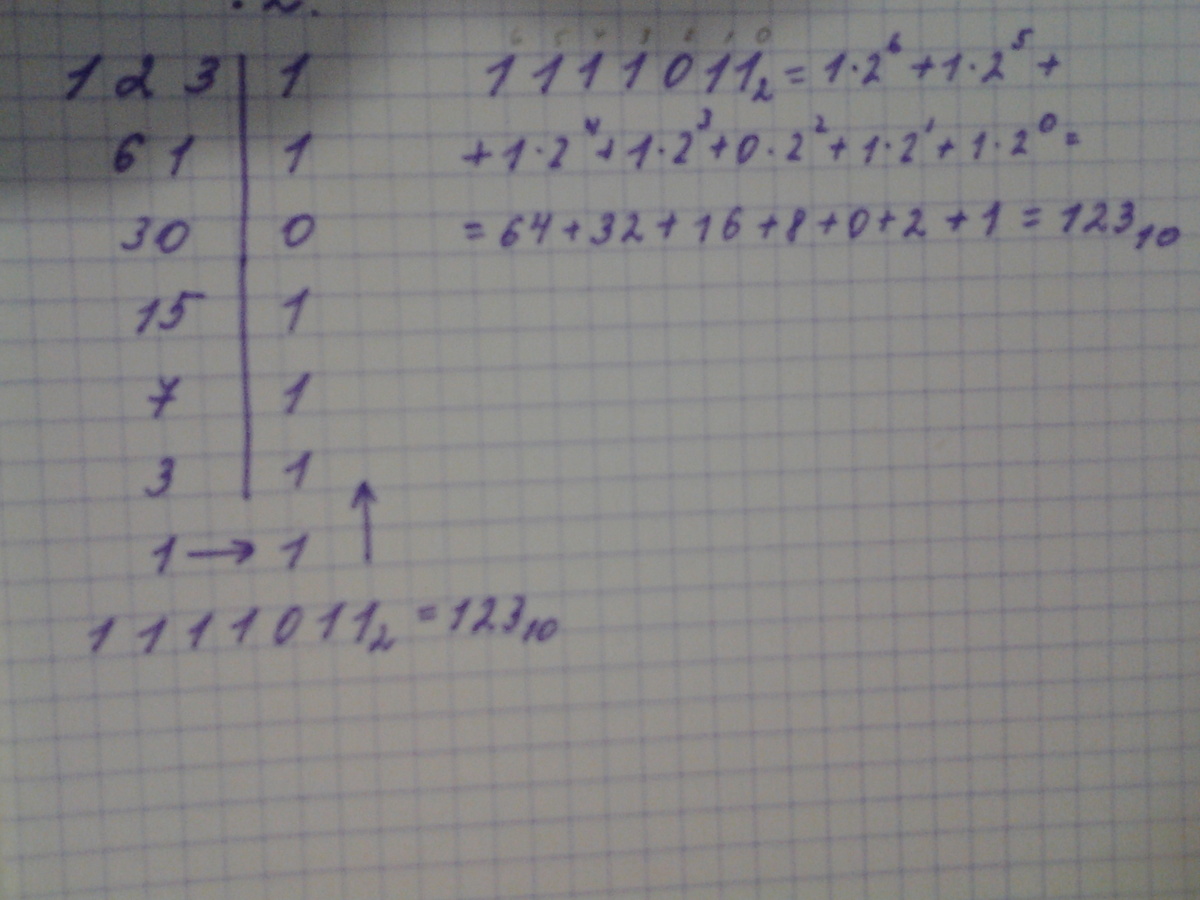 1 2 3 | 1
6 1 | 1
30 | 0
15 | 1
7 | 1
3 | 1
1 → 1 ↑
1111011₂ = 123₁₀
6 5 4 3 2 1 0
1111011₂ = 1·2⁶ + 1·2⁵ +
+ 1·2⁴ + 1·2³ + 0·2² + 1·2¹ + 1·2⁰ =
= 64 + 32 + 16 + 8 + 0 + 2 + 1 = 123₁₀